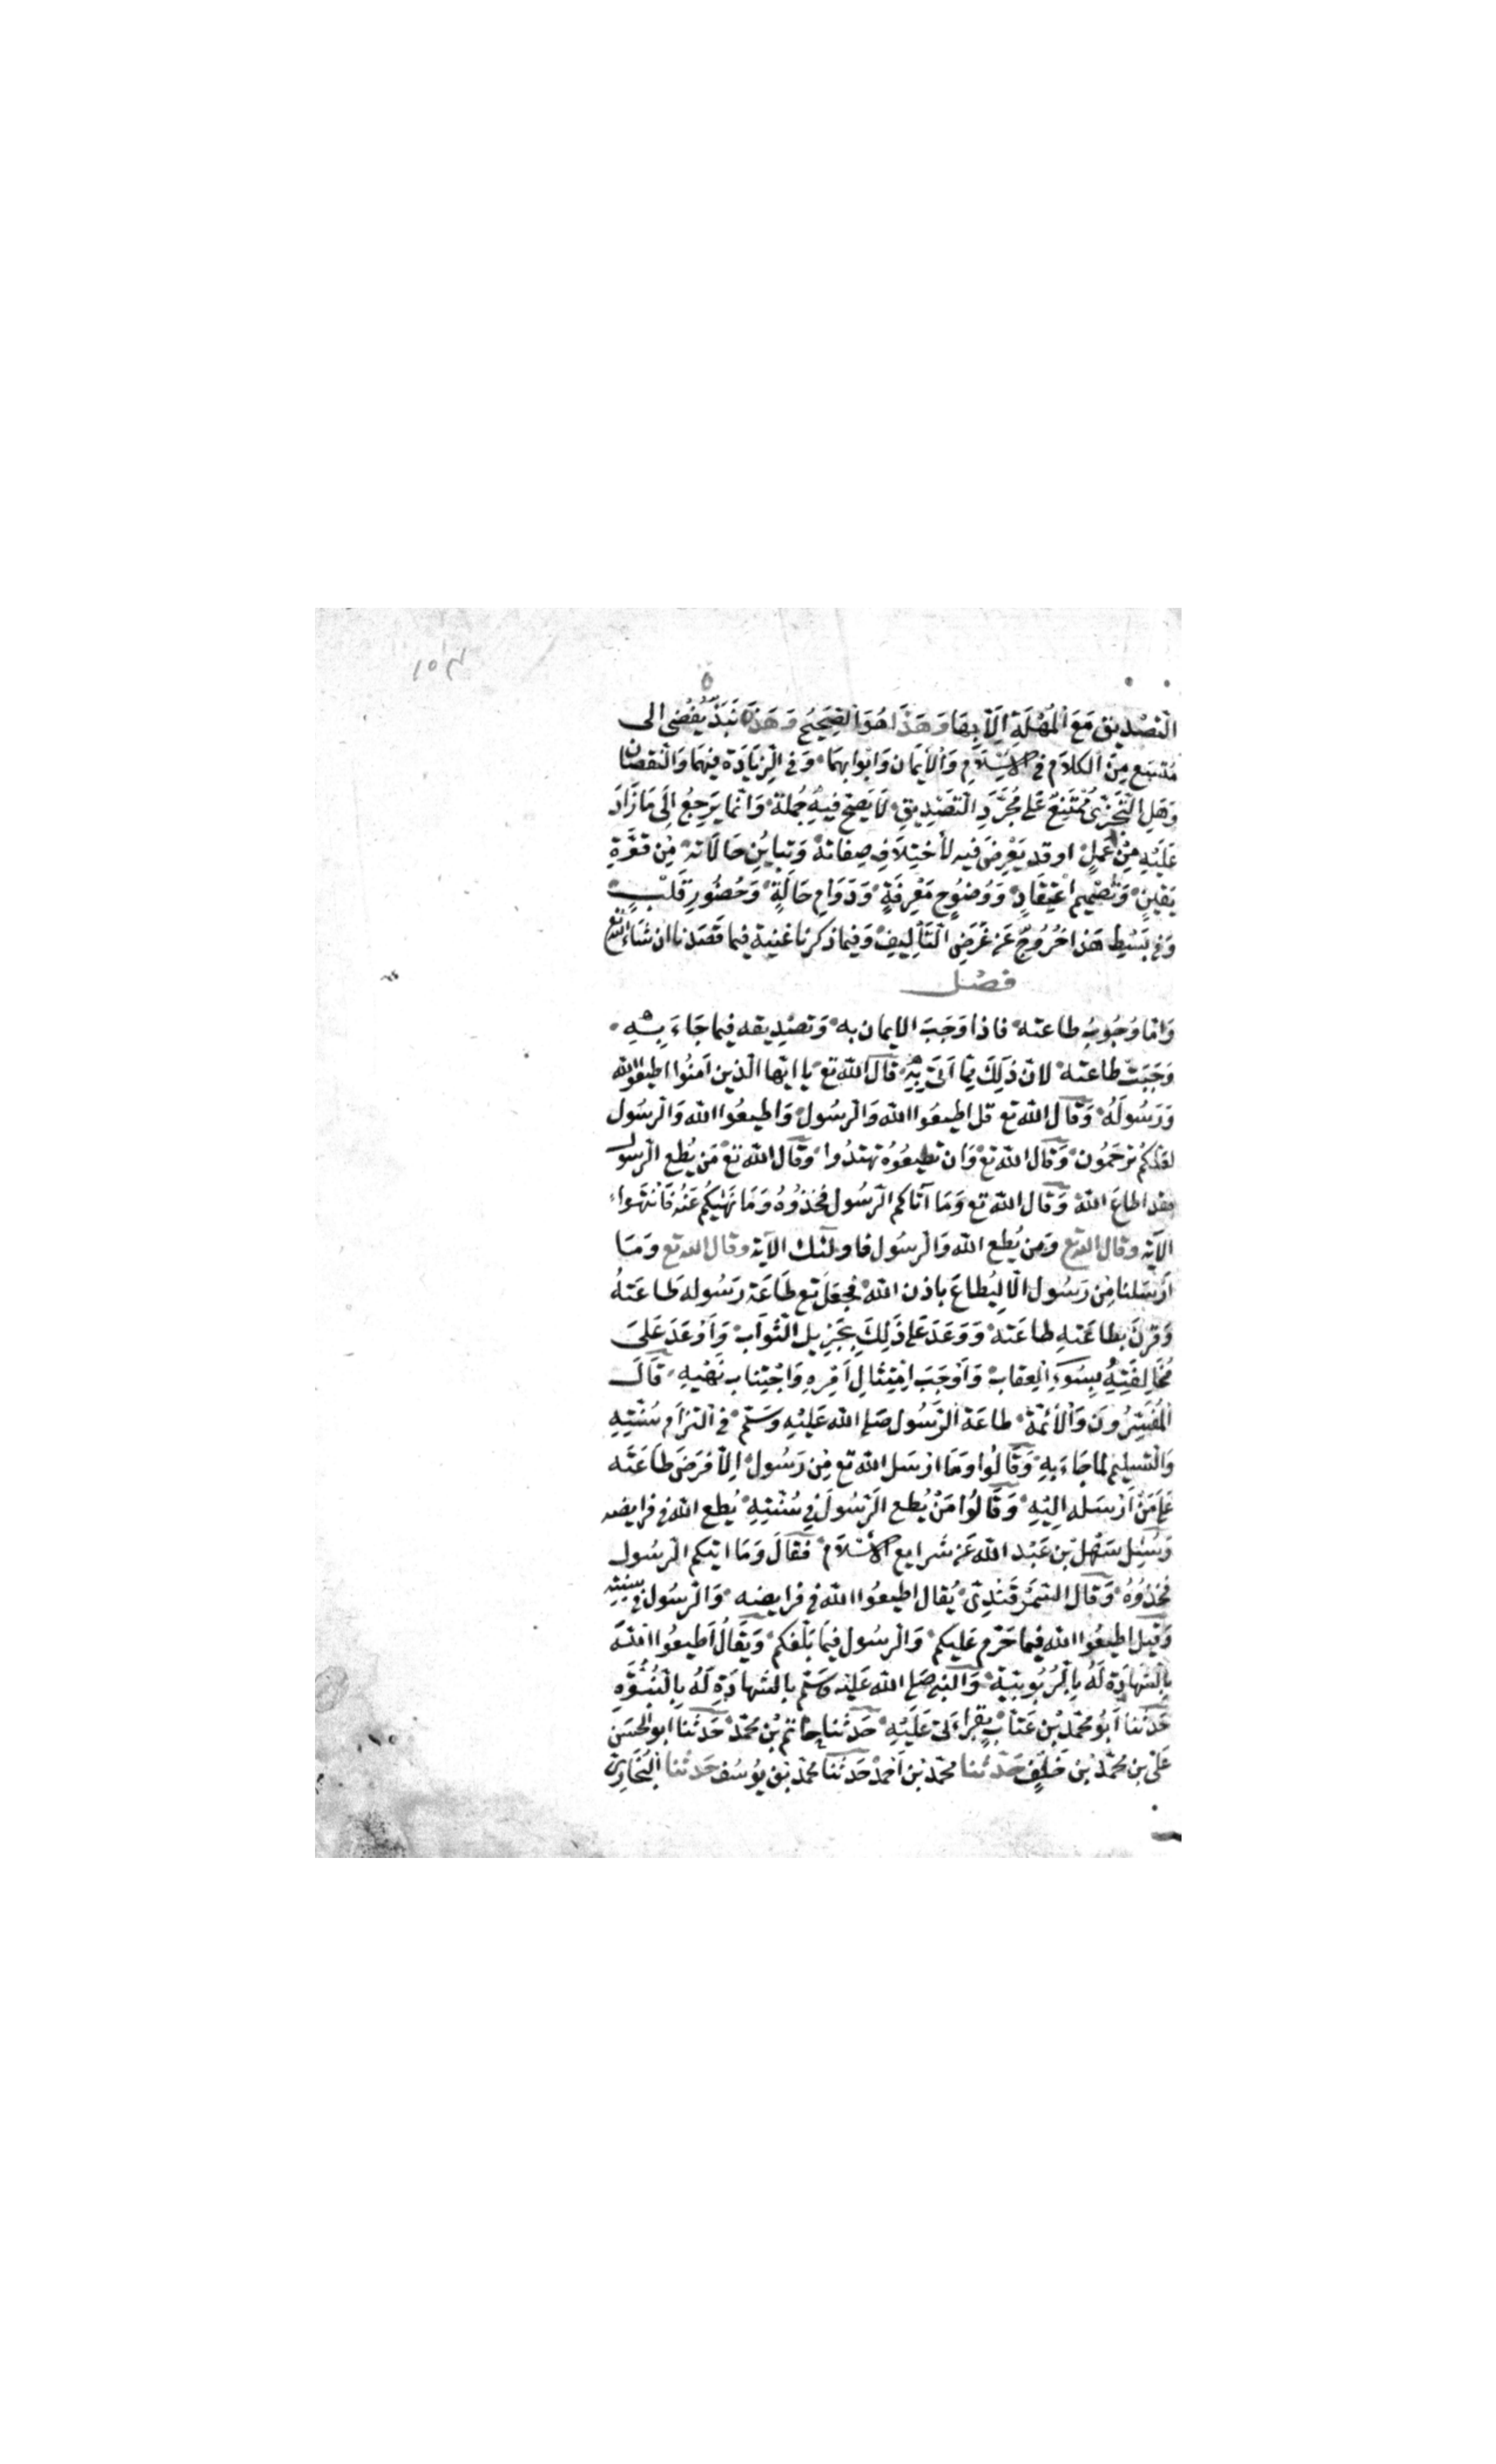 ١٥٨
التَّصْدِيق مَعَ الْمُهْلَةِ اِلَّا بِهَا وَهَذَا هُوَ الصَّحِيحُ وَهَذَا نَبَذٌ يُفْضِى الى
مُتَّسَعٍ مِنَ الكلَامِ فى الاسْلَامِ وَالْايمَان وَابْوابهمَا وَفى الزِيَادَة فيهَا وَالنُّقصَان
وَهَلِ التَّجَزِّى مُمْتَنِعٌ عَلى مُجَرَّدِ التَّصْدِيقِ لَا يَصِحُ فيهِ جُملةً وَانّما يَرجِعُ اِلَى مَا زَادَ
عَلَيْهِ مِنْ عَمَلٍ او قد يَعْرِضُ فيه لاخْتِلَافِ صِفَاتهْ وَتبَايُنِ حَالَاتهْ مِنْ قوَّةِ
يَقينٍ وَتَصْمِيم اعْتِقَادٍ وَوُضُوحِ مَعْرِفَةٍ وَدَوَامِ حَالَةٍ وَحُضُورِ قَلْبٍ
وَفى بَسْطِ هَذا خُرُوجٌ عَن غَرَضِ التَّأليفْ وَفيما ذكرنا غنية فيما قصَدنا ان شاءَ الله تع
فصْل
وَامّا وُجُوبُ طاعته فاذا وَجَبَ الايمان به وَتصْدِيقه فيما جَاءَ بِهِ
وَجَبَتْ طاعته لانّ ذَلِكَ مِمّا اَتَى بِهِ قالَ اللّه تع يا ايّها الّذين آمنُوا اطيعُوا الله
وَرَسُولَهُ وَقالَ الله تع قل اطيعُوا الله وَالرسُول وَاطيعُوا الله وَالرسُول
لعَلكُم تُرحَمُون وَقالَ الله تع وَان تطيعُوهُ تهتدُوا وَقالَ الله تع مَن يُطِع الرسول
فقد اطاعَ الله وَقالَ الله تع وَمَا آتاكم الرّسُول فخُذوُهُ وَمَا نَهٰيكُم عَنْهُ فَانْتهَوا
الآيَة وقال الله تع وَمن يُطع الله وَالرسُول فاولئك الآية وقال الله تع وَمَا
اَرْسَلنا مِن رَسُول الّا لِيُطاعَ باذن الله فجعَلَ تع طَاعَة رَسُوله طَاعَتهُ
وَقرنَ بِطاعَتهِ طاعَته وَوَعَدَ عَلى ذَلِكَ بِجَزِيل الثّوَاب وَاَوْعَدَ عَلىَ
مُخَالِفَتِهِ بِسُوءِ العِقاب وَاَوْجَبَ امْتِثالِ اَمْرِهِ وَاجْتِناب نَهْيهِ قالَ
المُفَسِّرُونَ وَالْأئمَّة طاعَة الرَّسُول صَلى الله عَليْهِ وَسَلّم فى الْتزَام سُنّتِهِ
وَالتّسليم لما جَاءَ بهِ وَقَالُوا وَمَا ارْسَل الله تع مِن رَسُول اِلّا فَرَضَ طَاعَتَه
عَلى مَنْ اَرْسَله اليْهِ وَقَالُوا مَنْ يُطع الرَّسُولَ فى سُنّتِهِ يُطع الله فى فرايضه
وَسُئِل سَهْل بْن عَبْد الله عَن شرايع الاسْلَام فَقالَ وَمَا اتيكم الرسُول
فخذوُهُ وَقالَ السَّمَرْقَنْدِىّ يُقال اطيعُوا الله فى فرايضه وَالرسُول فى سُنّته
وَقيل اطيعُوا الله فيما حَرّم عَليكم وَالرسُول فيما بَلّغكم وَيُقَالُ اَطيعُوا الله
بِالشهَادَة لَهُ بِالرّبُوبيّة وَالنبى صَلى الله عَليْه وَسَلّم بالشهادَةِ لَهُ بِالنُّبُوَّةِ
حَدثنا اَبُو محَمّد بْن عَتّاب بِقِراءَتى عَلَيْهِ حَدثنا حاتم بْن محَمّد حَدثنا ابو الحَسَن
عَلى بن مُحمّد بْن خَلَفٍ حَدثنا محَمّد بْن اَحمد حَدثنا محَمّد بْن يوُسُف حَدثنا البُخَارِىّ